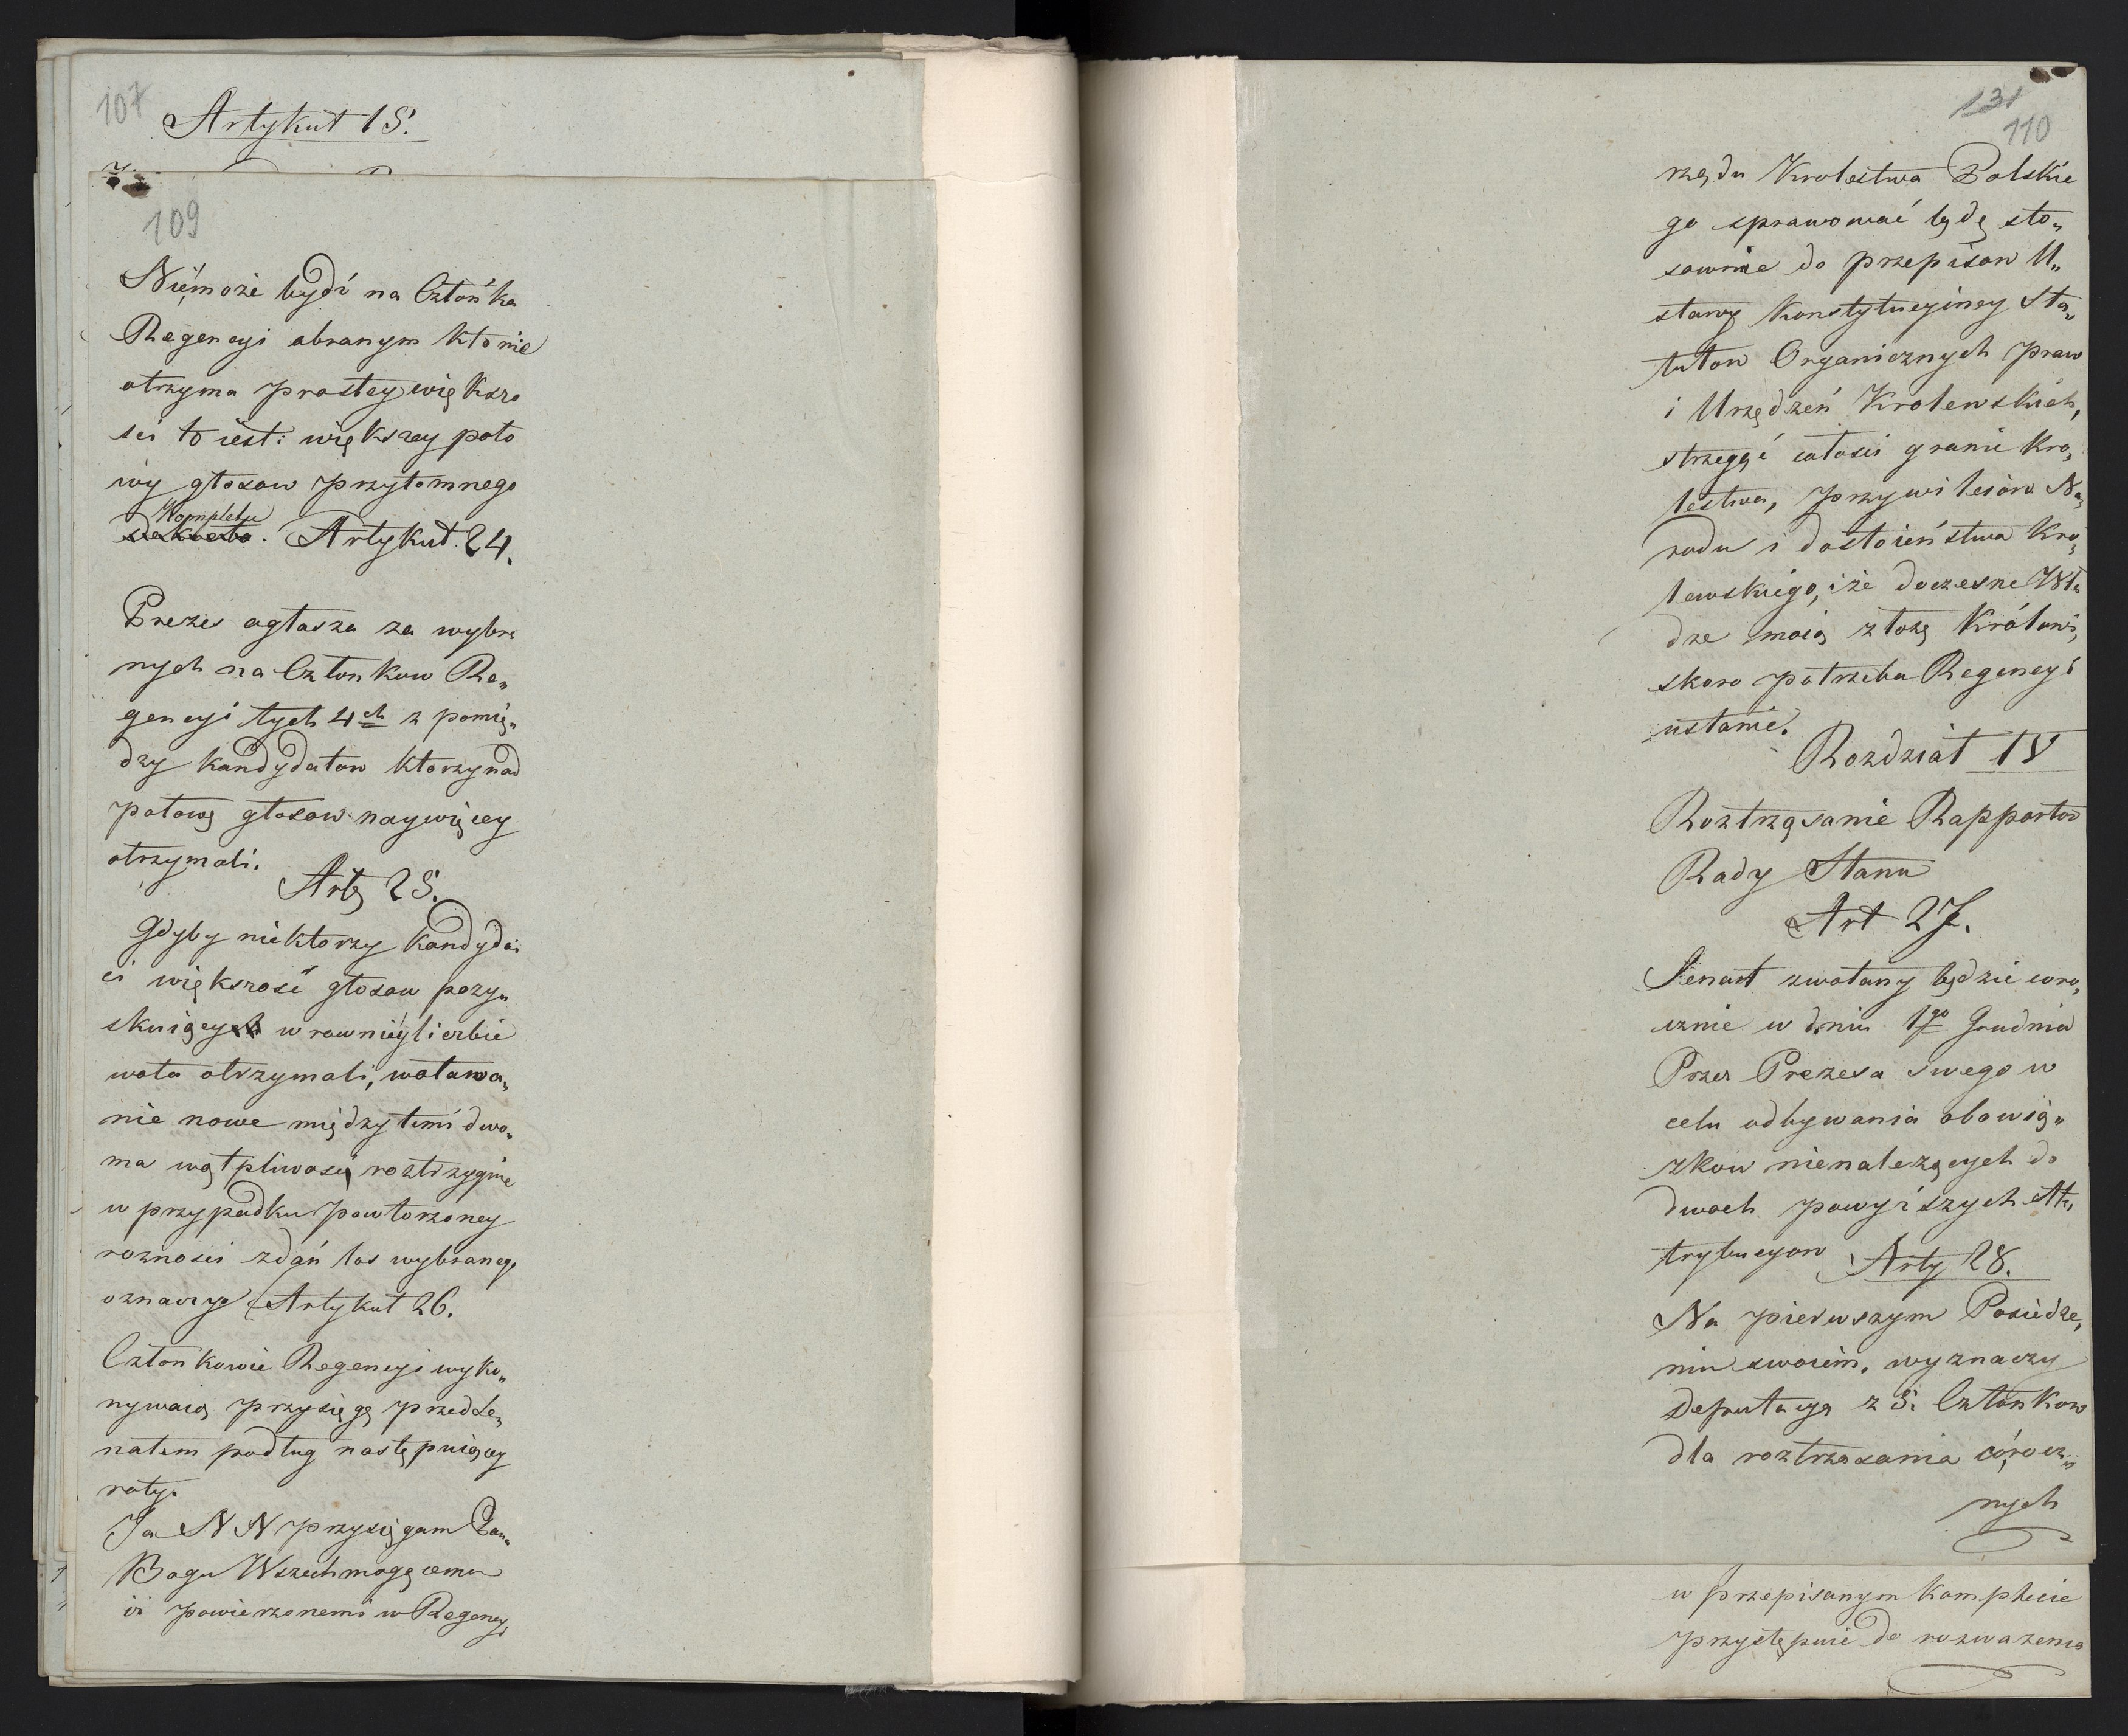 107
Artykuł 15.
109
Niemoże bydź na Członka
Regencyi obranym kto nie
otrzyma prostey większo
sci to iest: większey poło
wy głosow przytomnego
Kompletu
Artykuł. 24.
Prezes ogłasza za wybra
nych na Członkow Re„
gencyi tych 4ch z pomię„
dzy kandydatow ktorzy nad
połowę głosow naywięcey
otrzymali.
Arty 25.
Gdyby niektorzy kandyda„
ci większość głosow pozy„
skuiący w rowney liczbie
wota otrzymali, wotowa„
nie nowe między temi dwo„
ma wątpliwość roztrzygnie
w przypadku powtorzoney
rozności zdań los wybranego
oznaczy Artykuł 26.
Członkowie Regencyi wyko„
nywaią przysięgę przed Se„
natem podług następuiącey
roty.
Ja N N przysięgam Panu
Bogu Wszechmogącemu
iż powierzonemi w Regencyi
131
110
rzędu Krolestwa Polskie
go sprawować będę sto„
sownie do przepisow U„
stawy Konstytucyiney Sta„
tutow Organicznych praw
i Urzędzeń Krolewskich,
strzegąć całości granic Kro„
lestwa, przywileiow Na„
rodu i dostoieństwa Kro„
lewskiego, i że doczesne Wła
dze moią złożę Królowi,
skoro potrzeba Regencyi
ustanie.
Rozdział IV
Roztrząsanie Rapportow
Rady Stanu
Art 27.
Senat zwołany będzie coro„
cznie w dniu 1go Grudnia
Przez Prezesa swego w
celu odbywania obowią„
zkow nienależących do
dwoch powyższych At„
trybucyow Arty 28.
Na pierwszym Posiedze„
niu swoiem, wyznaczy
Deputacyą z 5. Członkow
dla roztrzasania corocz„
nych
w przepisanym komplecie
przystępuie do rozważenia